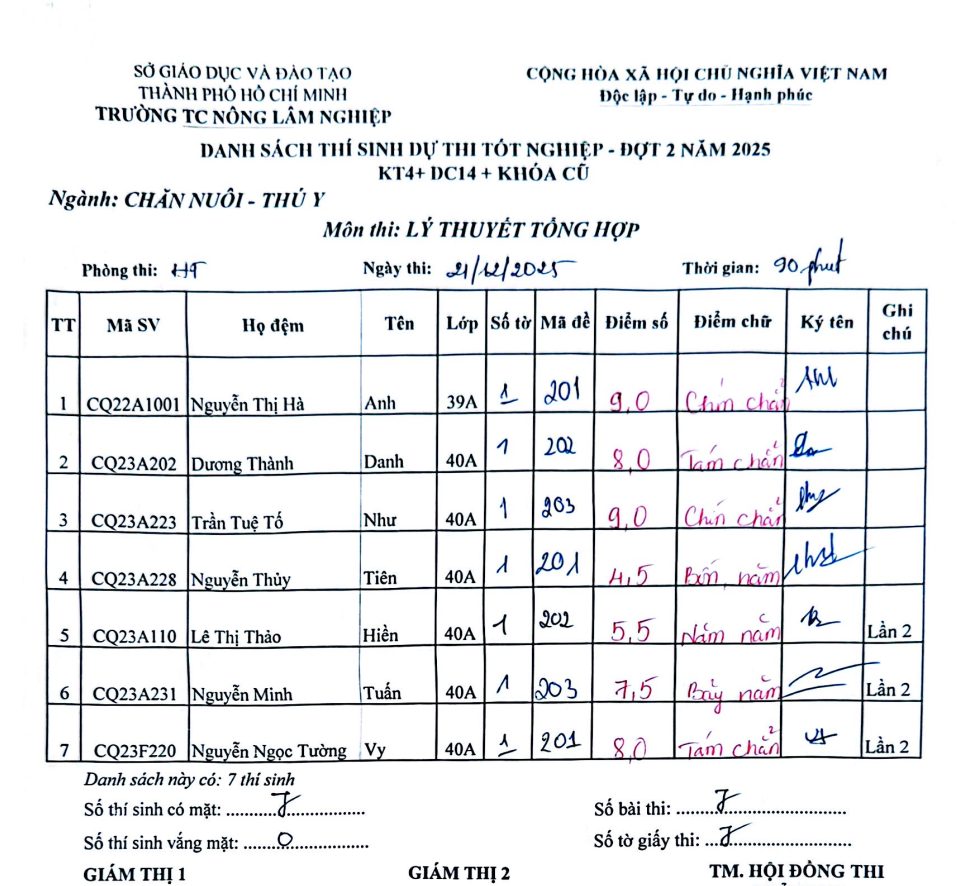 SỞ GIÁO DỤC VÀ ĐÀO TẠO
THÀNH PHỐ HỒ CHÍ MINH
TRƯỜNG TC NÔNG LÂM NGHIỆP
CỘNG HÒA XÃ HỘI CHỦ NGHĨA VIỆT NAM
Độc lập - Tự do - Hạnh phúc
DANH SÁCH THÍ SINH DỰ THI TỐT NGHIỆP - ĐỢT 2 NĂM 2025
KT4+ DC14 + KHÓA CŨ
Ngành: CHĂN NUÔI - THÚ Y
Môn thi: LÝ THUYẾT TỔNG HỢP
Phòng thi: HT Ngày thi: 21/12/2025 Thời gian: 90 phút
TT Mã SV Họ đệm Tên Lớp Số tờ Mã đề Điểm số Điểm chữ Ký tên Ghi chú
1 CQ22A1001 Nguyễn Thị Hà Anh 39A 1 201 9,0 Chín chẵn
2 CQ23A202 Dương Thành Danh 40A 1 202 8,0 Tám chẵn
3 CQ23A223 Trần Tuệ Tố Như 40A 1 203 9,0 Chín chẵn
4 CQ23A228 Nguyễn Thủy Tiên 40A 1 201 4,5 Bốn, năm
5 CQ23A110 Lê Thị Thảo Hiền 40A 1 202 5,5 Năm năm Lần 2
6 CQ23A231 Nguyễn Minh Tuấn 40A 1 203 7,5 Bảy năm Lần 2
7 CQ23F220 Nguyễn Ngọc Tường Vy 40A 1 201 8,0 Tám chẵn Lần 2
Danh sách này có: 7 thí sinh
Số thí sinh có mặt: 7 Số bài thi: 7
Số thí sinh vắng mặt: 0 Số tờ giấy thi: 7
GIÁM THỊ 1 GIÁM THỊ 2 TM. HỘI ĐỒNG THI